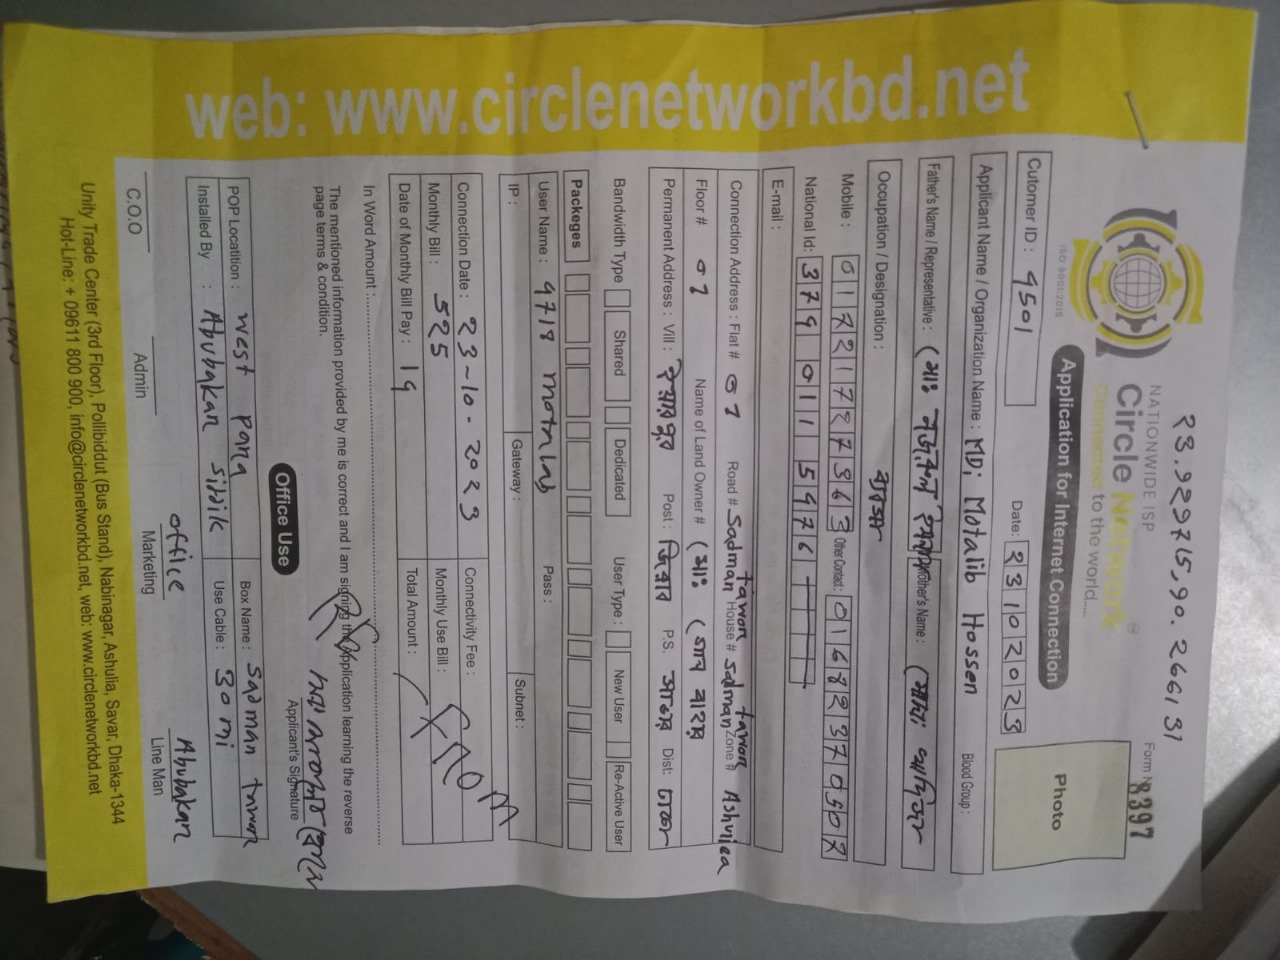 23.929715,90.266131
NATIONWIDE ISP
Circle Network
Connected to the world....
ISO 9001:2015
Form N 8397
Application for Internet Connection
Photo
Cutomer ID : 9501 Date: 23102023
Applicant Name / Organization Name : MD: Motalib Hossen Blood Group :
Father's Name / Representative : Mother's Name :
Occupation / Designation :
Mobile : 01721727363 Other Contact : 01682370507
National Id: 3790115976
E-mail :
Connection Address : Flat # 07 Road # Sadman tawor House # sadman tawor Zone # Ashuliea
Floor # 07 Name of Land Owner #
Permanent Address : Vill : Post : P.S. Dist: ঢাকা
Bandwidth Type Shared Dedicated User Type : New User Re-Active User
Packeges
User Name : 9718 motalab Pass :
IP : Gateway : Subnet :
Connection Date : 23-10-2023 Connectivity Fee :
Monthly Bill : 525 Monthly Use Bill :
Date of Monthly Bill Pay : 19 Total Amount :
In Word Amount :
The mentioned information provided by me is correct and I am signing the Application learning the reverse
page terms & condition.
Applicant's Signature
Office Use
POP Locatition : west para Box Name : Sadman tawor
Installed By : Abubakar siddik Use Cable : 30 mi
office Abubakar
C.O.O Admin Marketing Line Man
Unity Trade Center (3rd Floor), Pollibiddut (Bus Stand), Nabinagar, Ashulia, Savar, Dhaka-1344
Hot-Line: + 09611 800 900, info@circlenetworkbd.net, web: www.circlenetworkbd.net
web: www.circlenetworkbd.net